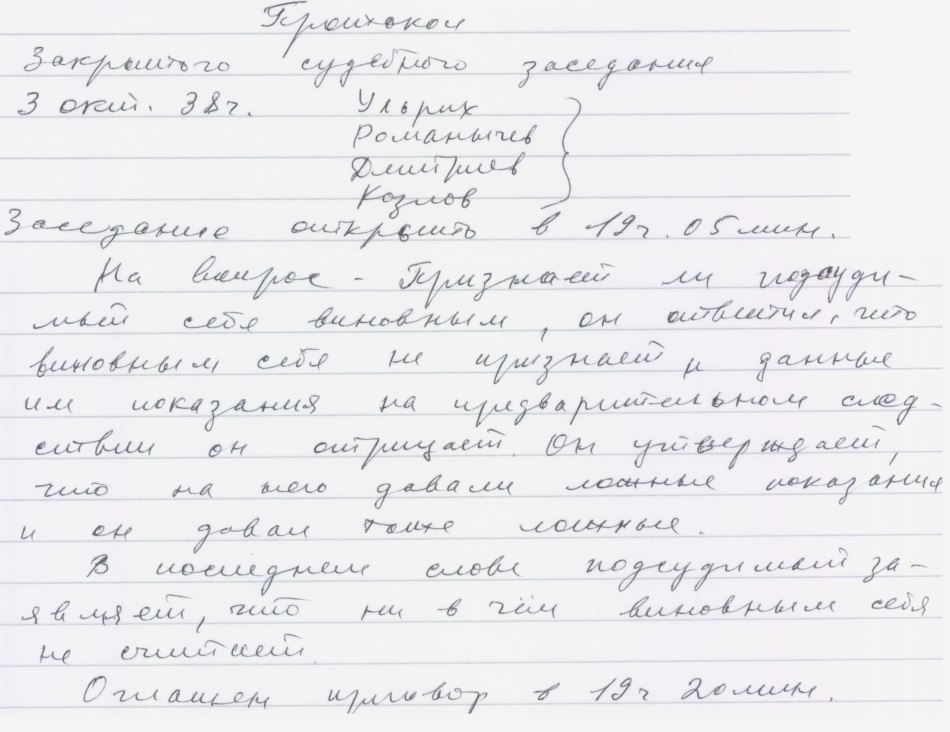 Протокол
Закрытого судебного заседания
3 окт. 38г. Ульрих
Романычев
Дмитриев
Козлов
Заседание открыто в 19ч. 05 мин.
На вопрос - Признает ли подсуди-
мый себя виновным, он ответил, что
виновным себя не признает и данные
им показания на предварительном след-
ствии он отрицает. Он утверждает,
что на него давали ложные показания
и он давал тоже ложные.
В последнем слове подсудимый за-
являет, что ни в чём виновным себя
не считает.
Оглашен приговор в 19ч 20 мин.